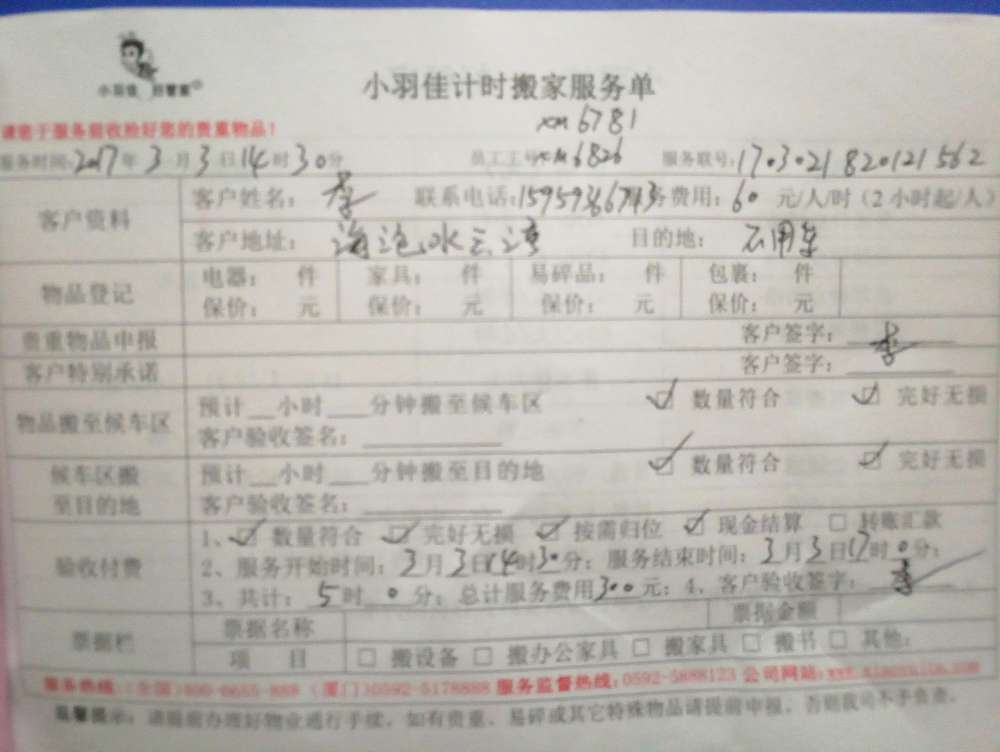 小羽佳 好管家
小羽佳计时搬家服务单
xm6781
请您于服务前收拾好您的贵重物品！
服务时间：2017年3月3日14时30分 员工工号：xm6826 服务联号：170302182012 1562
客户资料 客户姓名：李 联系电话：15959366743 服务费用：60元/人/时（2小时起/人）
客户地址：海沧水云湾 目的地：不用车
物品登记 电器： 件 家具： 件 易碎品： 件 包裹： 件
保价： 元 保价： 元 保价： 元 保价： 元
贵重物品申报 客户签字：李
客户特别承诺 客户签字：
物品搬至候车区 预计__小时___分钟搬至候车区 ☑ 数量符合 ☑ 完好无损
客户验收签名：
候车区搬至目的地 预计__小时___分钟搬至目的地 ☑ 数量符合 ☑ 完好无损
客户验收签名：
验收付费 1、☑ 数量符合 ☑ 完好无损 ☑ 按需归位 ☑ 现金结算 □ 转账汇款
2、服务开始时间：3月3日14时30分；服务结束时间：3月3日17时0分；
3、共计：5时0分；总计服务费用300元；4、客户验收签字：李
票据栏 票据名称 票据金额
项 目 □ 搬设备 □ 搬办公家具 □ 搬家具 □ 搬书 □ 其他：
服务热线：（全国）400-6655-888（厦门）0592-5178888 服务监督热线：0592-5888123 公司网站：www.xiaoyujia.com
温馨提示：请提前办理好物业通行手续，如有贵重、易碎或其它特殊物品请提前申报，否则我司不予负责。